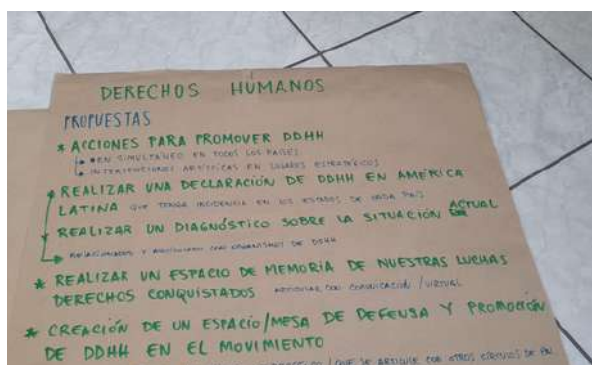 DERECHOS HUMANOS
PROPUESTAS
* ACCIONES PARA PROMOVER DDHH
EN SIMULTÁNEO EN TODOS LOS PAÍSES
INTERVENCIONES ARTÍSTICAS EN LUGARES ESTRATÉGICOS
* REALIZAR UNA DECLARACIÓN DE DDHH EN AMÉRICA
LATINA QUE TENGA INCIDENCIA EN LOS ESTADOS DE CADA PAÍS
* REALIZAR UN DIAGNÓSTICO SOBRE LA SITUACIÓN ACTUAL
Y CON ORGANISMOS DE DDHH
* REALIZAR UN ESPACIO DE MEMORIA DE NUESTRAS LUCHAS
DERECHOS CONQUISTADOS ARTICULAR CON COMUNICACIÓN / VIRTUAL
* CREACIÓN DE UN ESPACIO/MESA DE DEFENSA Y PROMOCIÓN
DE DDHH EN EL MOVIMIENTO
/ QUE SE ARTICULE CON OTROS CÍRCULOS DE